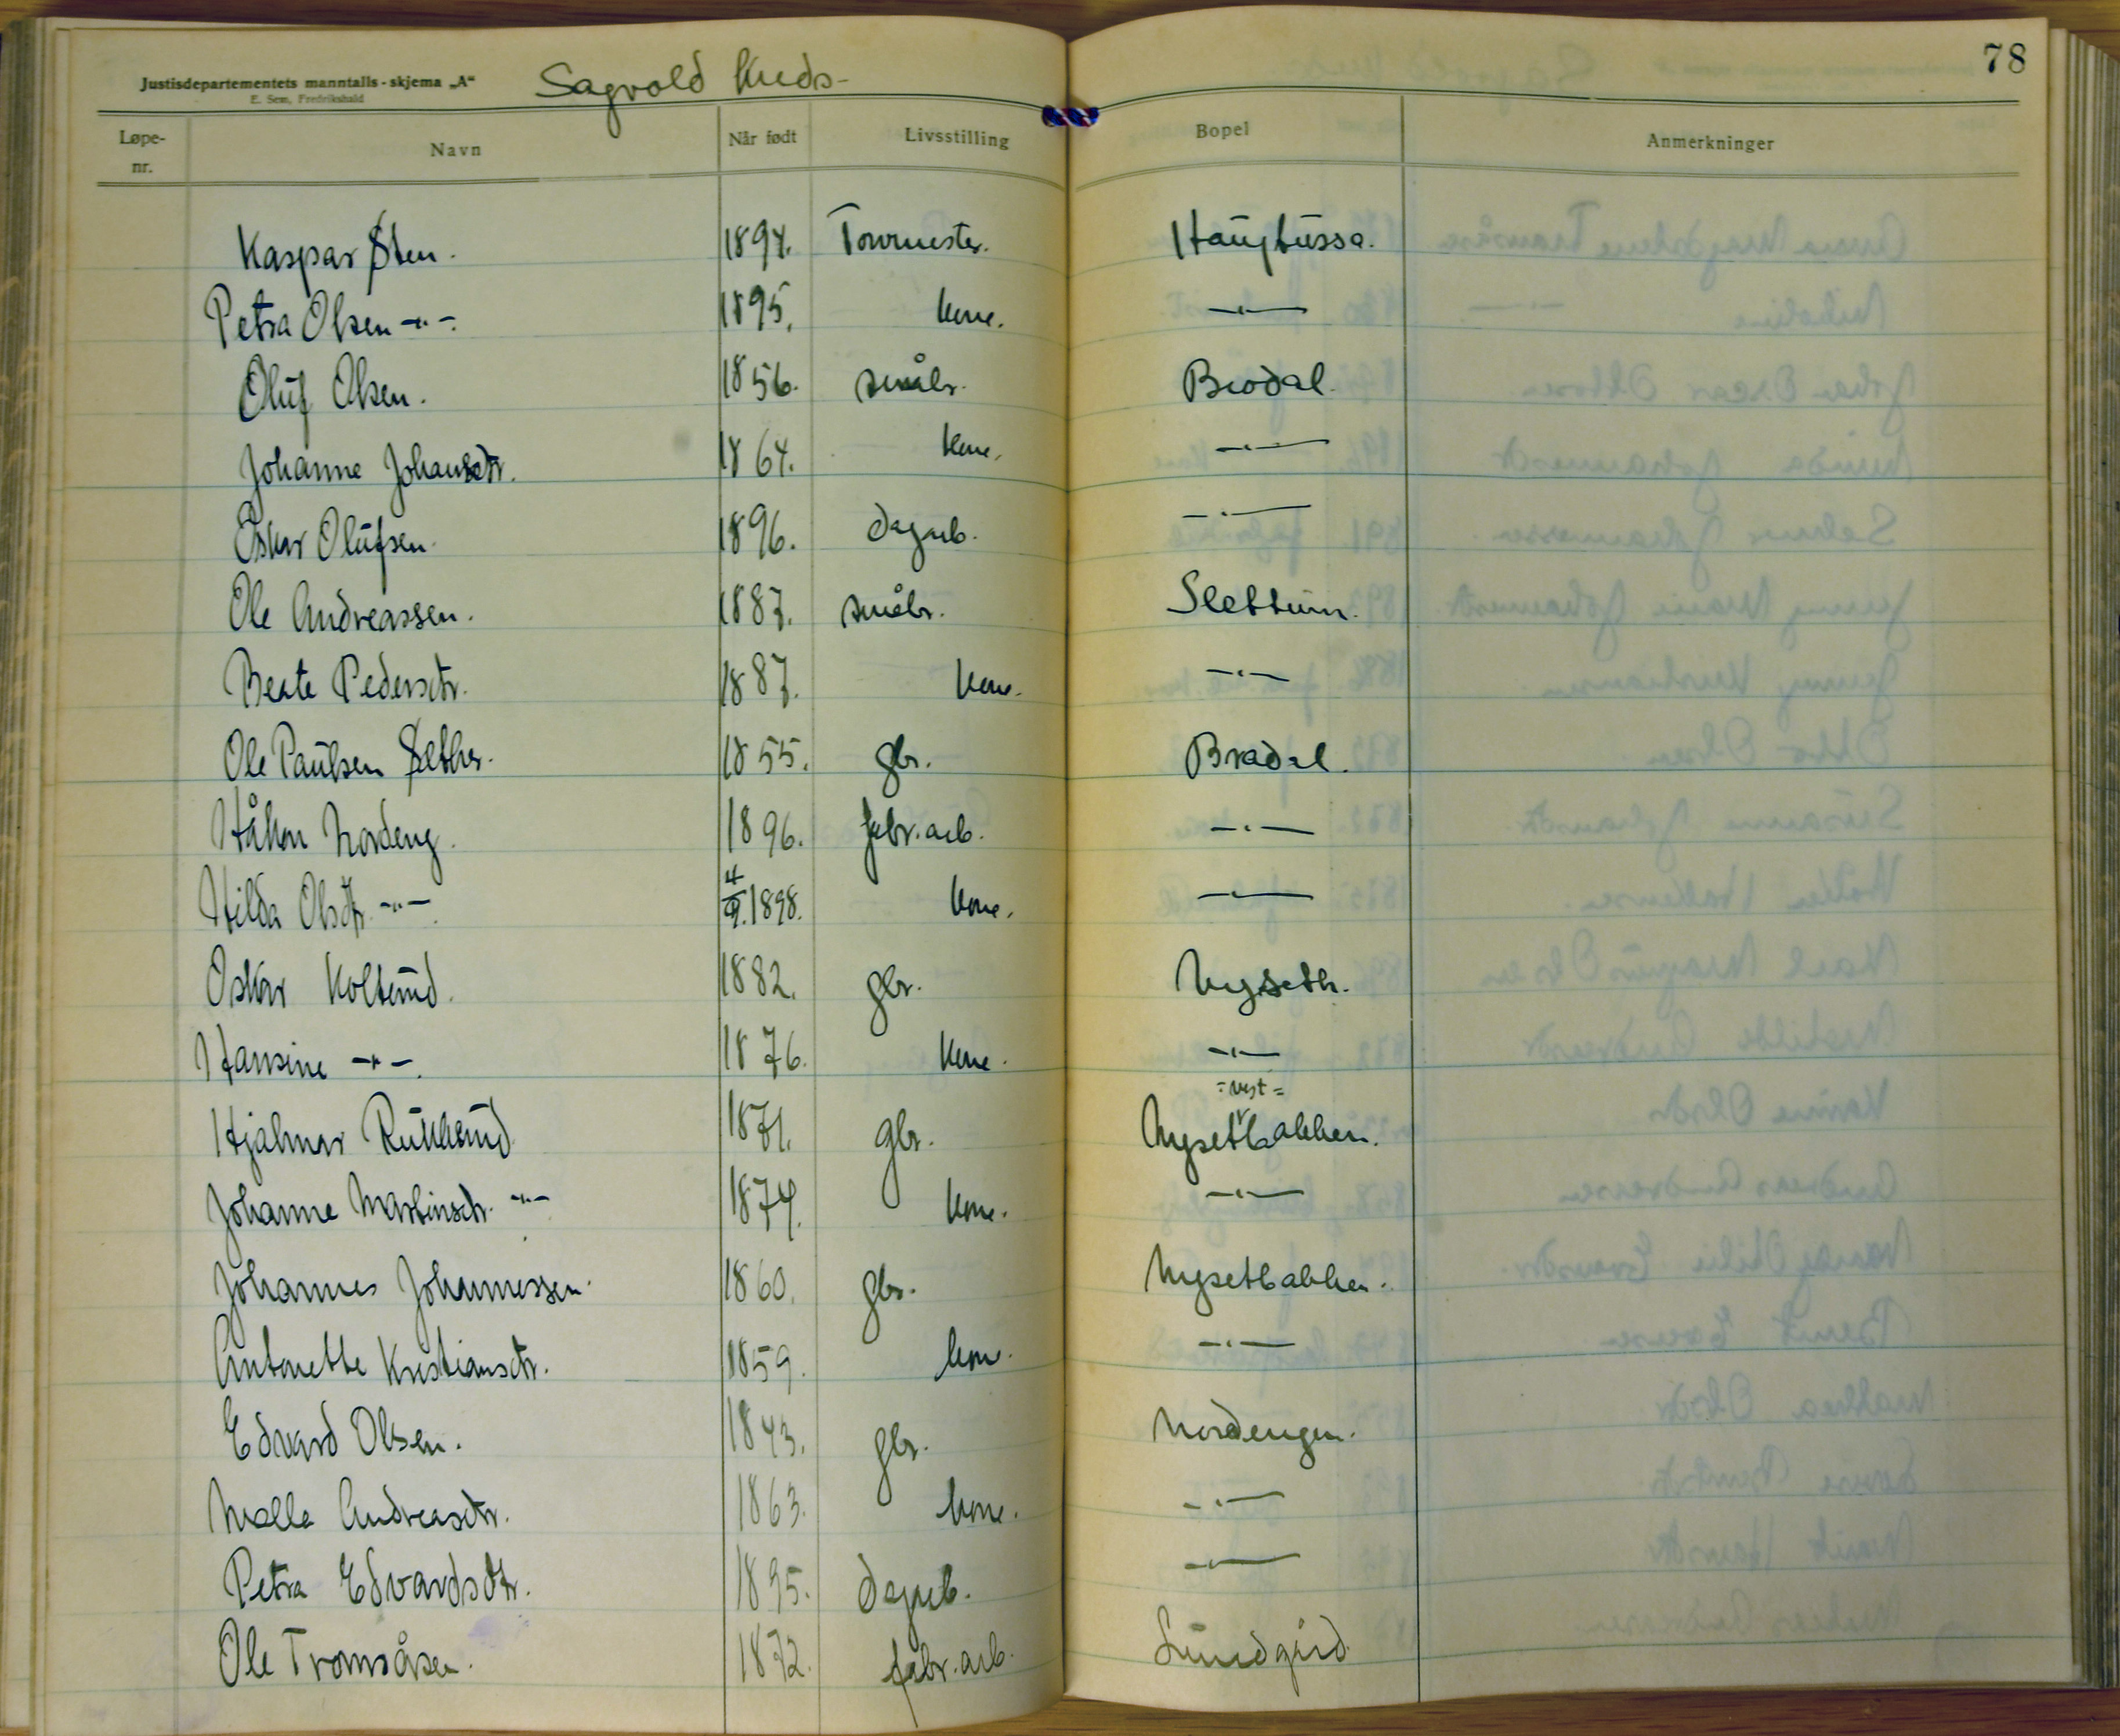 78
Justisdepartementets manntalls-skjema „A“ Sagvold Kreds-
E. Sem, Fredrikshald
Løpe-nr. Navn Når født Livsstilling Bopel Anmerkninger
Kaspar Sten. 1894. Haugtussa.
Petra Olsen -"-. 1895. kone. -"-
Oluf Olsen. 1856. småbr. Brodal.
Johanne Johansdtr. 1864. kone. -"-
Oskar Olufsen. 1896. dagarb. -"-
Ole Andreassen. 1887. småbr. Slettum.
Beate Pedersdtr. 1887. kone. -"-
Ole Paulsen Sæther. 1855. gbr. Bradal.
Håkon Nordeng. 1896. fabr.arb. -"-
Hilda Olsdtr. -"-. 4/9.1898. kone. -"-
Oskar Koltund. 1882. gbr. Nyseth.
Hansine -"-. 1876. kone. -"-
Hjalmar 1871. gbr. Nysetbakken.
Johanne Martinsdtr. -"- 1874. kone. -"-
Johannes Johannessen. 1860. gbr. Nysetbakken.
Antonette Kristiansdtr. 1859. kone. -"-
Edvard Olsen. 1843. gbr. Nordengen.
Malla Andreasdtr. 1863. kone. -"-
Petra Edvardsdtr. 1895. dagarb. -"-
Ole Tromsåsen. 1872. fabr.arb. Lundgård.